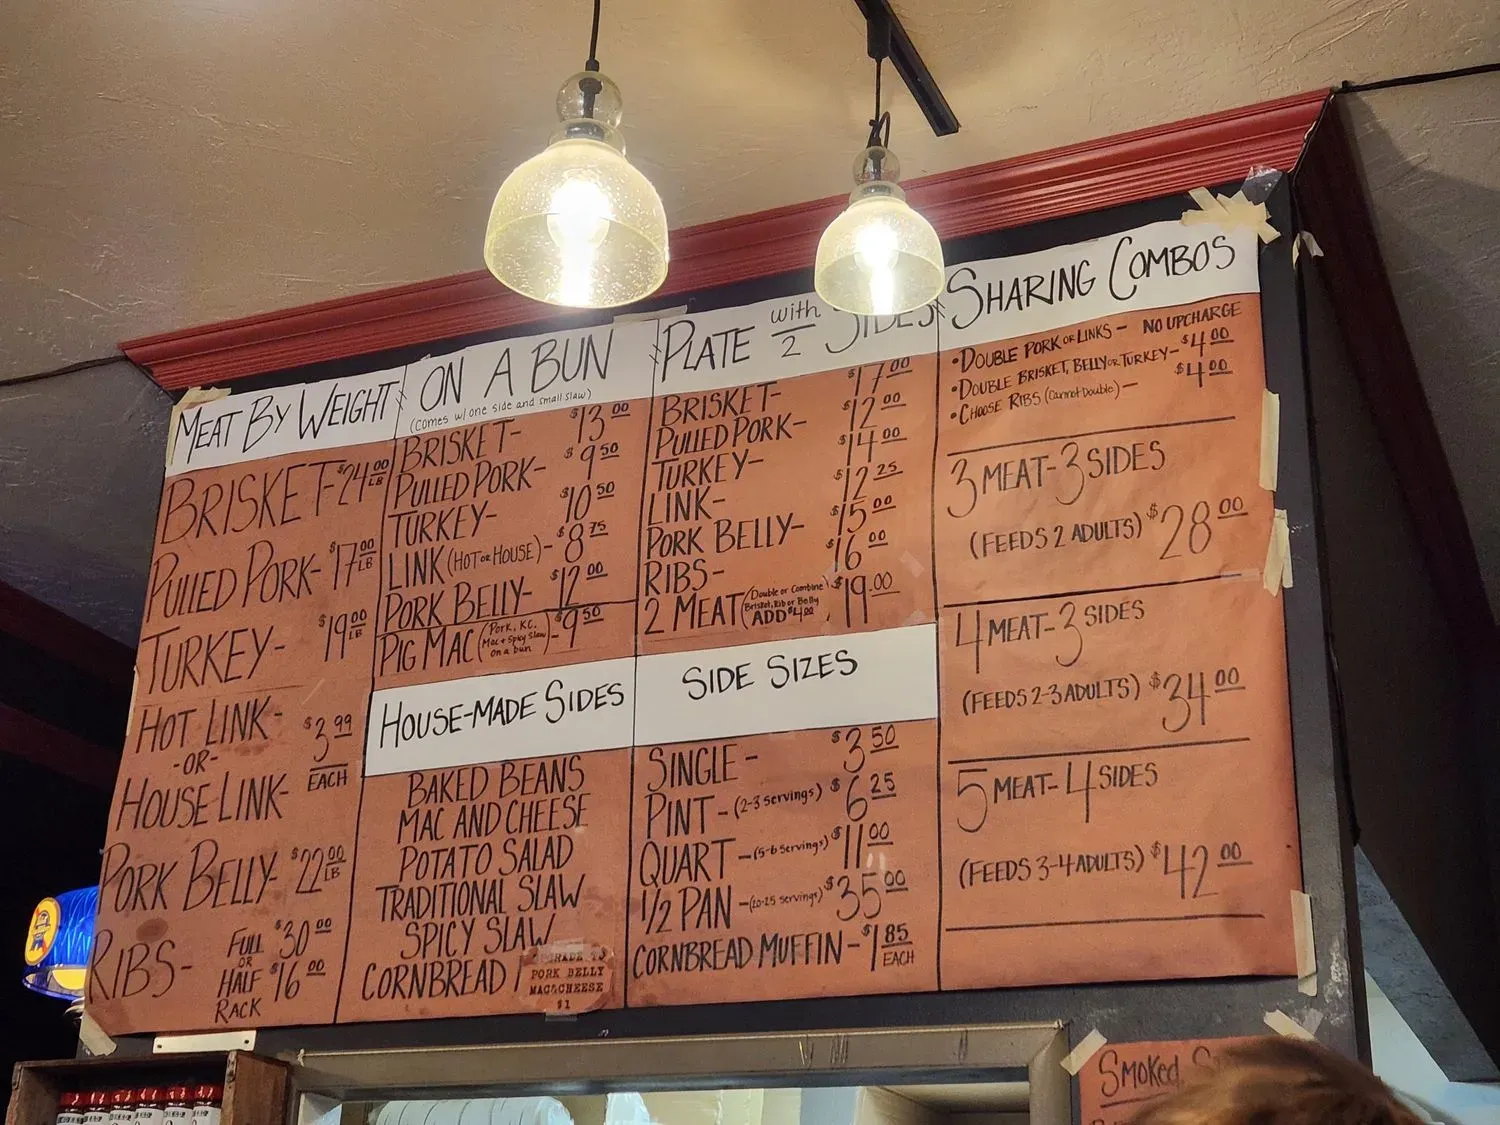 MEAT BY WEIGHT
BRISKET- $24.00 LB
PULLED PORK- $17.00 LB
TURKEY- $19.00 LB
HOT LINK-
-OR-
HOUSE LINK-
$3.99
EACH
PORK BELLY- $22.00 LB
RIBS-
FULL $30.00
OR
HALF $16.00
RACK
ON A BUN
(comes w/ one side and small slaw)
BRISKET- $13.00
PULLED PORK- $9.50
TURKEY- $10.50
LINK (HOT OR HOUSE)- $8.75
PORK BELLY- $12.00
PIG MAC (Pork, KC. Mac + Spicy Slaw on a bun)- $9.50
HOUSE-MADE SIDES
BAKED BEANS
MAC AND CHEESE
POTATO SALAD
TRADITIONAL SLAW
SPICY SLAW
CORNBREAD
PORK BELLY
MAC&CHEESE
$1
PLATE with 2 SIDES
BRISKET- $17.00
PULLED PORK- $12.00
TURKEY- $14.00
LINK- $12.25
PORK BELLY- $15.00
RIBS- $16.00
2 MEAT (Double or Combine Brisket, Rib or Belly ADD $4.00) $19.00
SIDE SIZES
SINGLE- $3.50
PINT-(2-3 servings) $6.25
QUART-(5-6 servings) $11.00
1/2 PAN-(20-25 servings) $35.00
CORNBREAD MUFFIN- $1.85 EACH
SHARING COMBOS
•DOUBLE PORK OR LINKS- NO UPCHARGE
•DOUBLE BRISKET, BELLY OR TURKEY- $4.00
•CHOOSE RIBS (Cannot Double)- $4.00
3 MEAT-3 SIDES
(FEEDS 2 ADULTS) $28.00
4 MEAT-3 SIDES
(FEEDS 2-3 ADULTS) $34.00
5 MEAT-4 SIDES
(FEEDS 3-4 ADULTS) $42.00
SMOKED